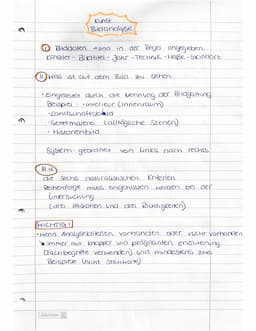 Kunst
Bildanalyse
① Bilddaten → sind in der Regel angegeben
Künstler - Bildtitel - Jahr - Technik - Maße - Standort
② Was ist auf dem Bild zu sehen
• Eingeleitet durch die Nennung der Bildgattung
Beispiel: - Interieur (Innenraum)
- Landschaftsbild
- Genremalerei (alltägliche Szenen)
- Historienbild
System: geordnet von links nach rechts
die sechs naturalistischen Kriterien
Reihenfolge muss eingehalten werden bei der
Untersuchung
(drei Illusionen und drei Richtigkeiten)
WICHTIG!
• Wenn Analysekriterien vorhanden oder nicht vorhanden
immer mit knapper und prägnanter Erläuterung
(Fachbegriffe verwenden) und mindestens zwei
Beispiele (nicht